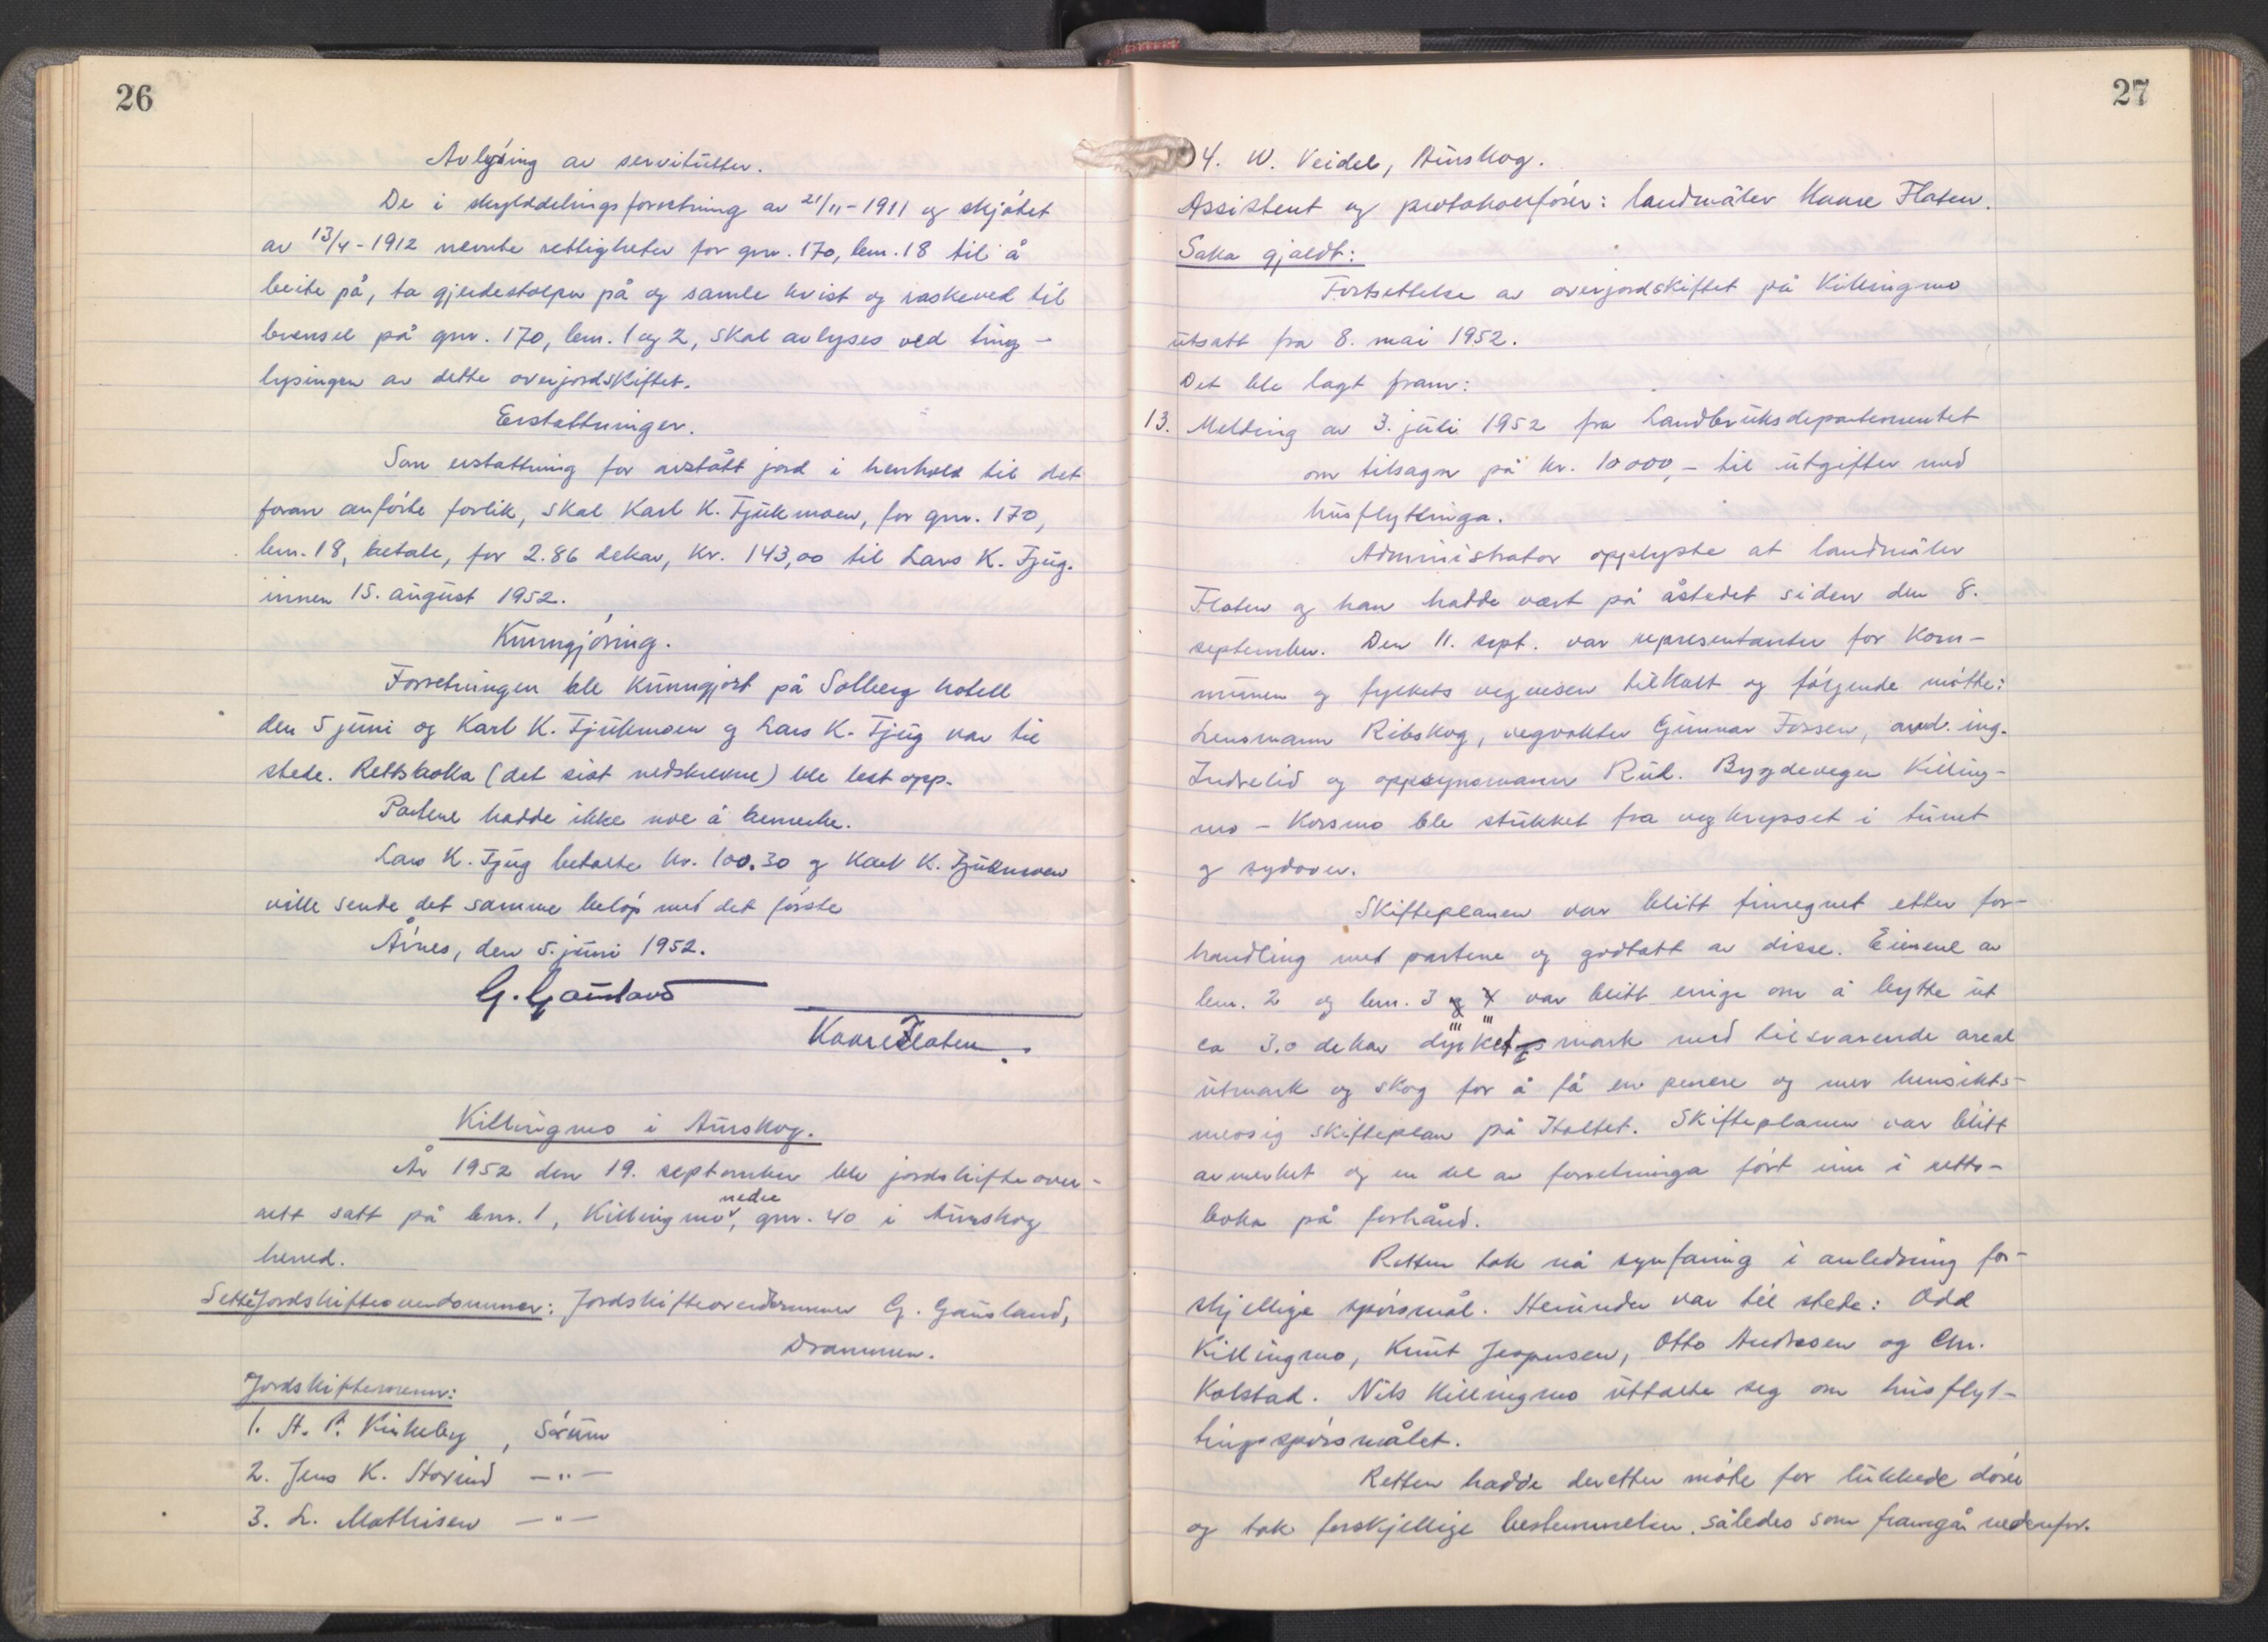 26
Avlysing av servitutter.
De i skylddelingsforretning av 21/11-1911 og skjøtet
av 13/4-1912 nevnte rettigheter for gnr. 170, bnr. 18 til å
beite på, ta gjerdestolper på og samle kvist og raskeved til
brensel på gnr. 170, bnr. 1 og 2, skal avlyses ved ting-
lysingen av dette overjordskiftet.
Erstatninger.
Som erstatning for avstått jord i henhold til det
foran anførte forlik, skal Karl K. Fjukmoen, for gnr. 170,
bnr. 18, betale, for 2.86 dekar, kr. 143,00 til Lars K. Fjug.
innen 15. august 1952.
Kunngjøring.
Forretningen ble kunngjort på Solberg hotell
den 5 juni og Karl K. Fjukmoen og Lars K. Fjug var til
stede. Rettsboka (det sist nedskrevne) ble lest opp.
Partene hadde ikke noe å bemerke.
Lars K. Fjug betalte kr. 100.30 og Karl K. Fjukmoen
ville sende det samme beløp med det første
Årnes, den 5. juni 1952.
G. Gausland
Kaare Flaten.
Killingmo i Aurskog.
År 1952 den 19. september ble jordskifteover-
rett satt på bnr. 1, Killingmo nedre, gnr. 40 i Aurskog
herred.
Settejordskifteoverdommer: Jordskifteoverdommer G. Gausland,
Drammen.
Jordskiftemenn:
1. H. P. Kirkeby, Sørum
2. Jens K. Horind —"—
3. L. Mathisen —"—
27
4. W. Veidel, Aurskog.
Assistent og protokollfører: landmåler Kaare Flaten.
Saka gjaldt:
Fortsettelse av overjordskiftet på Killingmo
utsatt fra 8. mai 1952.
Det ble lagt fram:
13. Melding av 3. juli 1952 fra Landbruksdepartementet
om tilsagn på kr. 10000,- til utgifter med
husflyttinga.
Administrator opplyste at landmåler
Flaten og han hadde vært på åstedet siden den 8.
september. Den 11. sept. var representanter for kom-
munen og fylkets vegvesen tilkalt og følgende møtte:
Lensmann Ribskog, vegvokter Gunnar Fossen, avd. ing.
Indrelid og oppsynsmann Rud. Bygdevegen Killing-
mo - Korsmo ble stukket fra vegkrysset i tunet
og sydover.
Skifteplanen var blitt finregnet etter for-
handling med partene og godtatt av disse. Eierene av
bnr. 2 og bnr. 3 og 4 var blitt enige om å bytte ut
ca 3.0 dekar dyrket mark med tilsvarende areal
utmark og skog for å få en penere og mer hensikts-
messig skifteplan på Holtet. Skifteplanen var blitt
avmerket og en del av forretninga ført inn i retts-
boka på forhånd.
Retten tok nå synfaring i anledning for-
skjellige spørsmål. Herunder var til stede: Odd
Killingmo, Knut Jespersen, Otto Andresen og Chr.
Kolstad. Nils Killingmo uttalte seg om husflyt-
tingsspørsmålet.
Retten hadde deretter møte for lukkede dører
og tok forskjellige bestemmelser, således som framgår nedenfor.